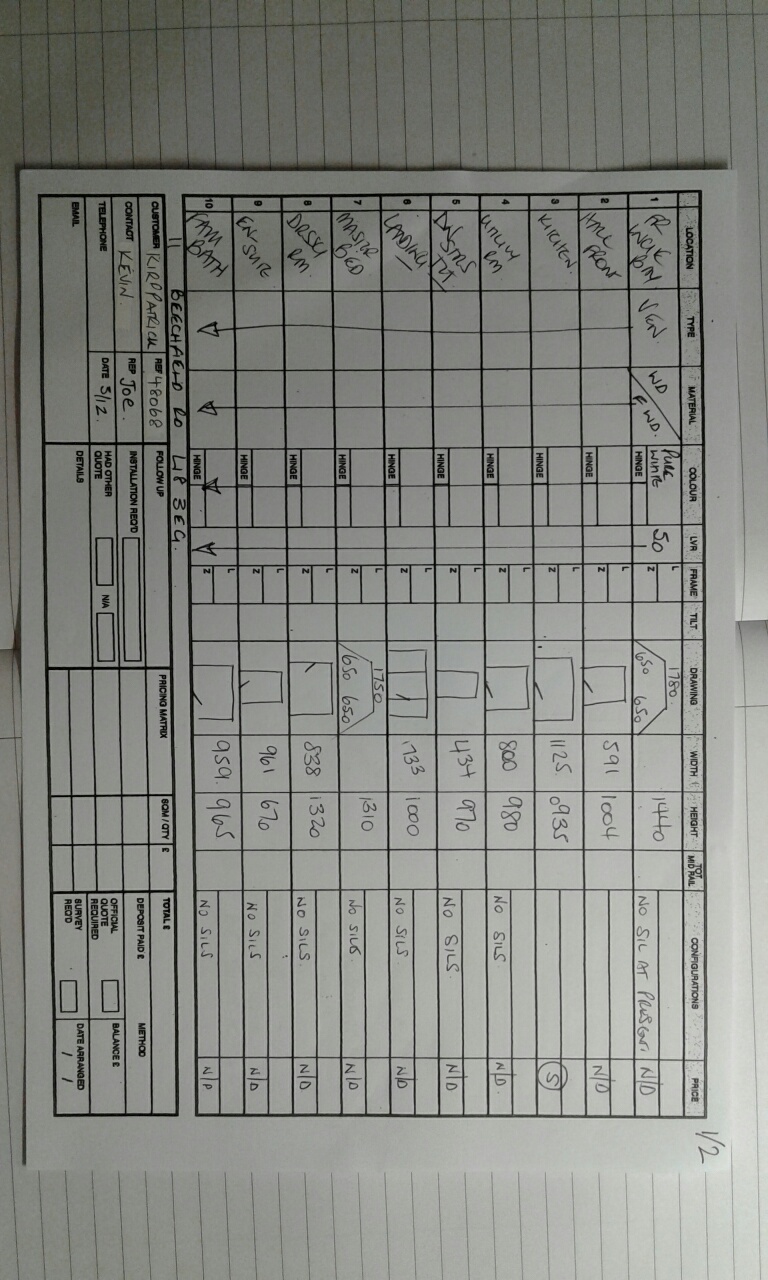 1/2
LOCATION TYPE MATERIAL COLOUR LVR FRAME TILT DRAWING WIDTH HEIGHT TOT MID RAIL CONFIGURATIONS PRICE
1 FR WEK VGN WD PURE WHITE HINGE 50 L Z 1780 650 650 1440 NO SIL AT PRESENT N/D
2 HALL FRONT HINGE L Z 591 1004 N/D
3 KITCHEN HINGE L Z 1125 0935 S
4 UTILITY RM HINGE L Z 800 980 NO SILS N/D
5 DNSTRS TLT HINGE L Z 434 970 NO SILS. N/D
6 LANDING HINGE L Z 1733 1000 NO SILS. N/D
7 MASTER BED HINGE L Z 1750 650 650 1310 NO SILS N/D
8 DRSSG RM. HINGE L Z 838 1320 NO SILS. N/D
9 EN SUITE HINGE L Z 961 670 NO SILS N/D
10 FAM BATH HINGE L Z 959. 965 NO SILS N/D
11 BEECHFIELD RD L18 3EG.
CUSTOMER KIRKPATRICK REF 48068 FOLLOW UP PRICING MATRIX SQM / QTY £ TOTAL £
CONTACT KEVIN. REP JOE. INSTALLATION REQ'D DEPOSIT PAID £ METHOD
TELEPHONE DATE 3/12. HAD OTHER QUOTE N/A OFFICIAL QUOTE REQUIRED BALANCE £
EMAIL DETAILS SURVEY REQ'D DATE ARRANGED / /